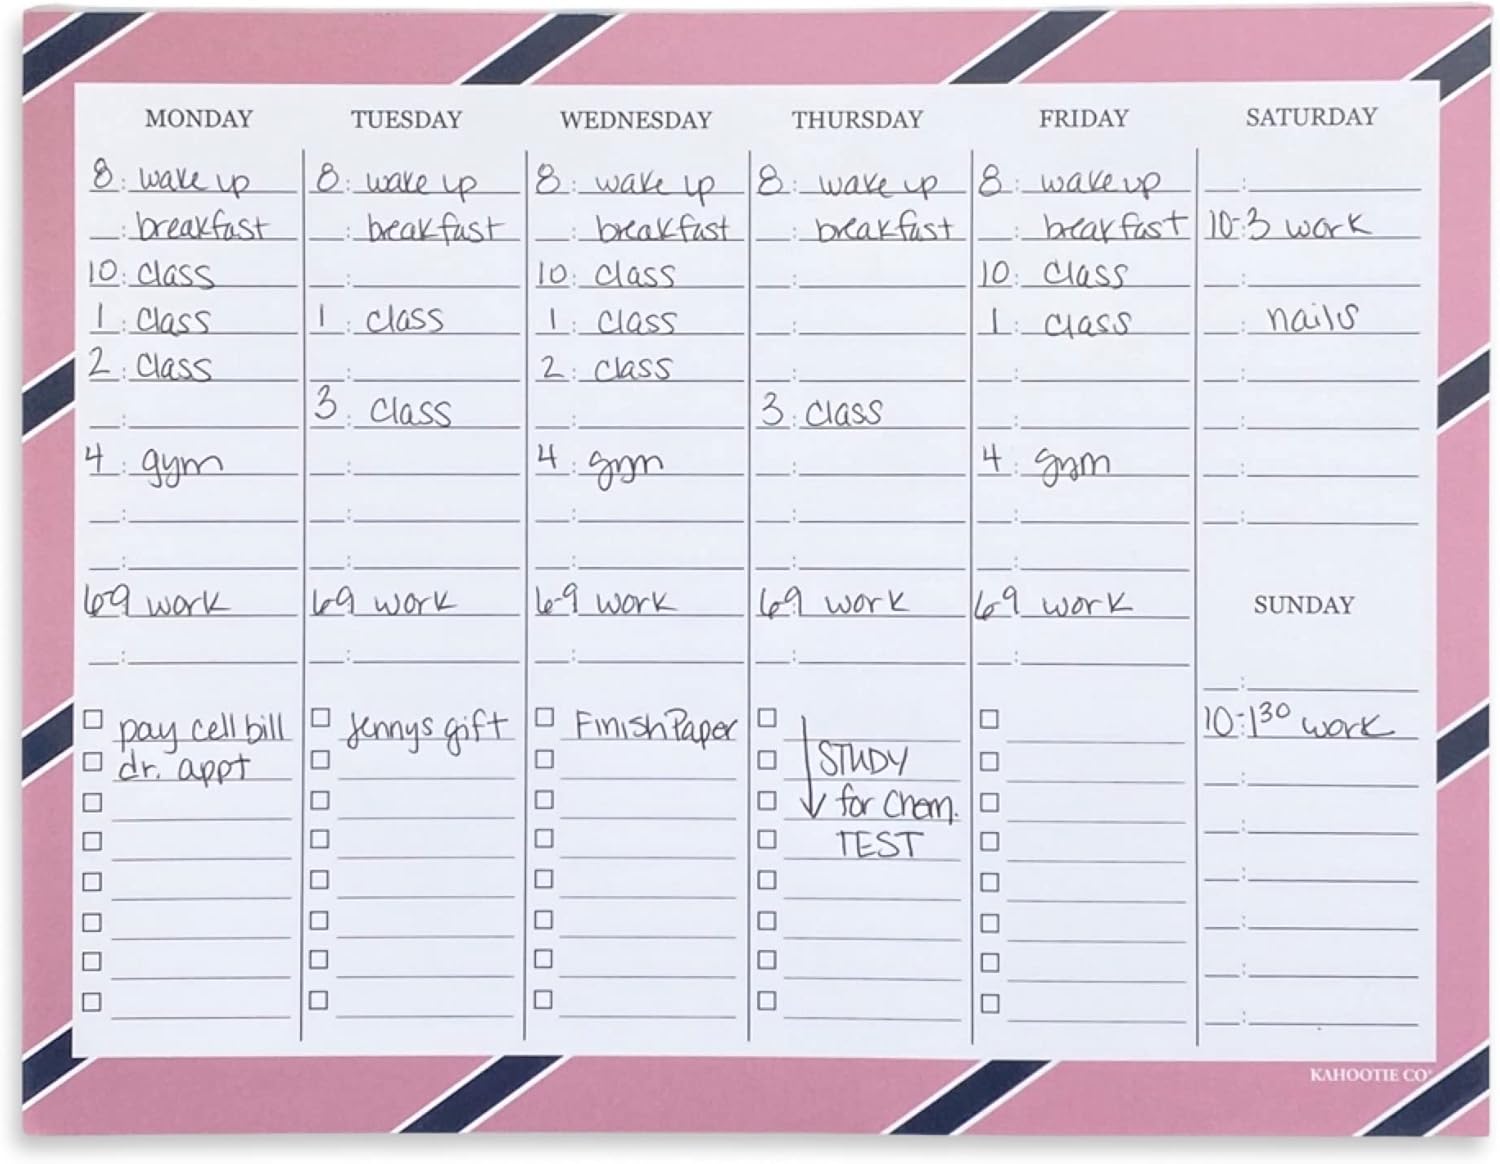 MONDAY
8: wake up
breakfast
10: class
1: class
2: class
4: gym
6-9 work
pay cell bill
dr. appt
TUESDAY
8: wake up
breakfast
1: class
3: class
6-9 work
Jennys gift
WEDNESDAY
8: wake up
breakfast
10: class
1: class
2: class
4: gym
6-9 work
Finish Paper
THURSDAY
8: wake up
breakfast
3: class
6-9 work
STUDY
for Chem.
TEST
FRIDAY
8: wake up
breakfast
10: class
1: class
4: gym
6-9 work
SATURDAY
10-3 work
nails
SUNDAY
10-1:30 work
KAHOOTIE CO